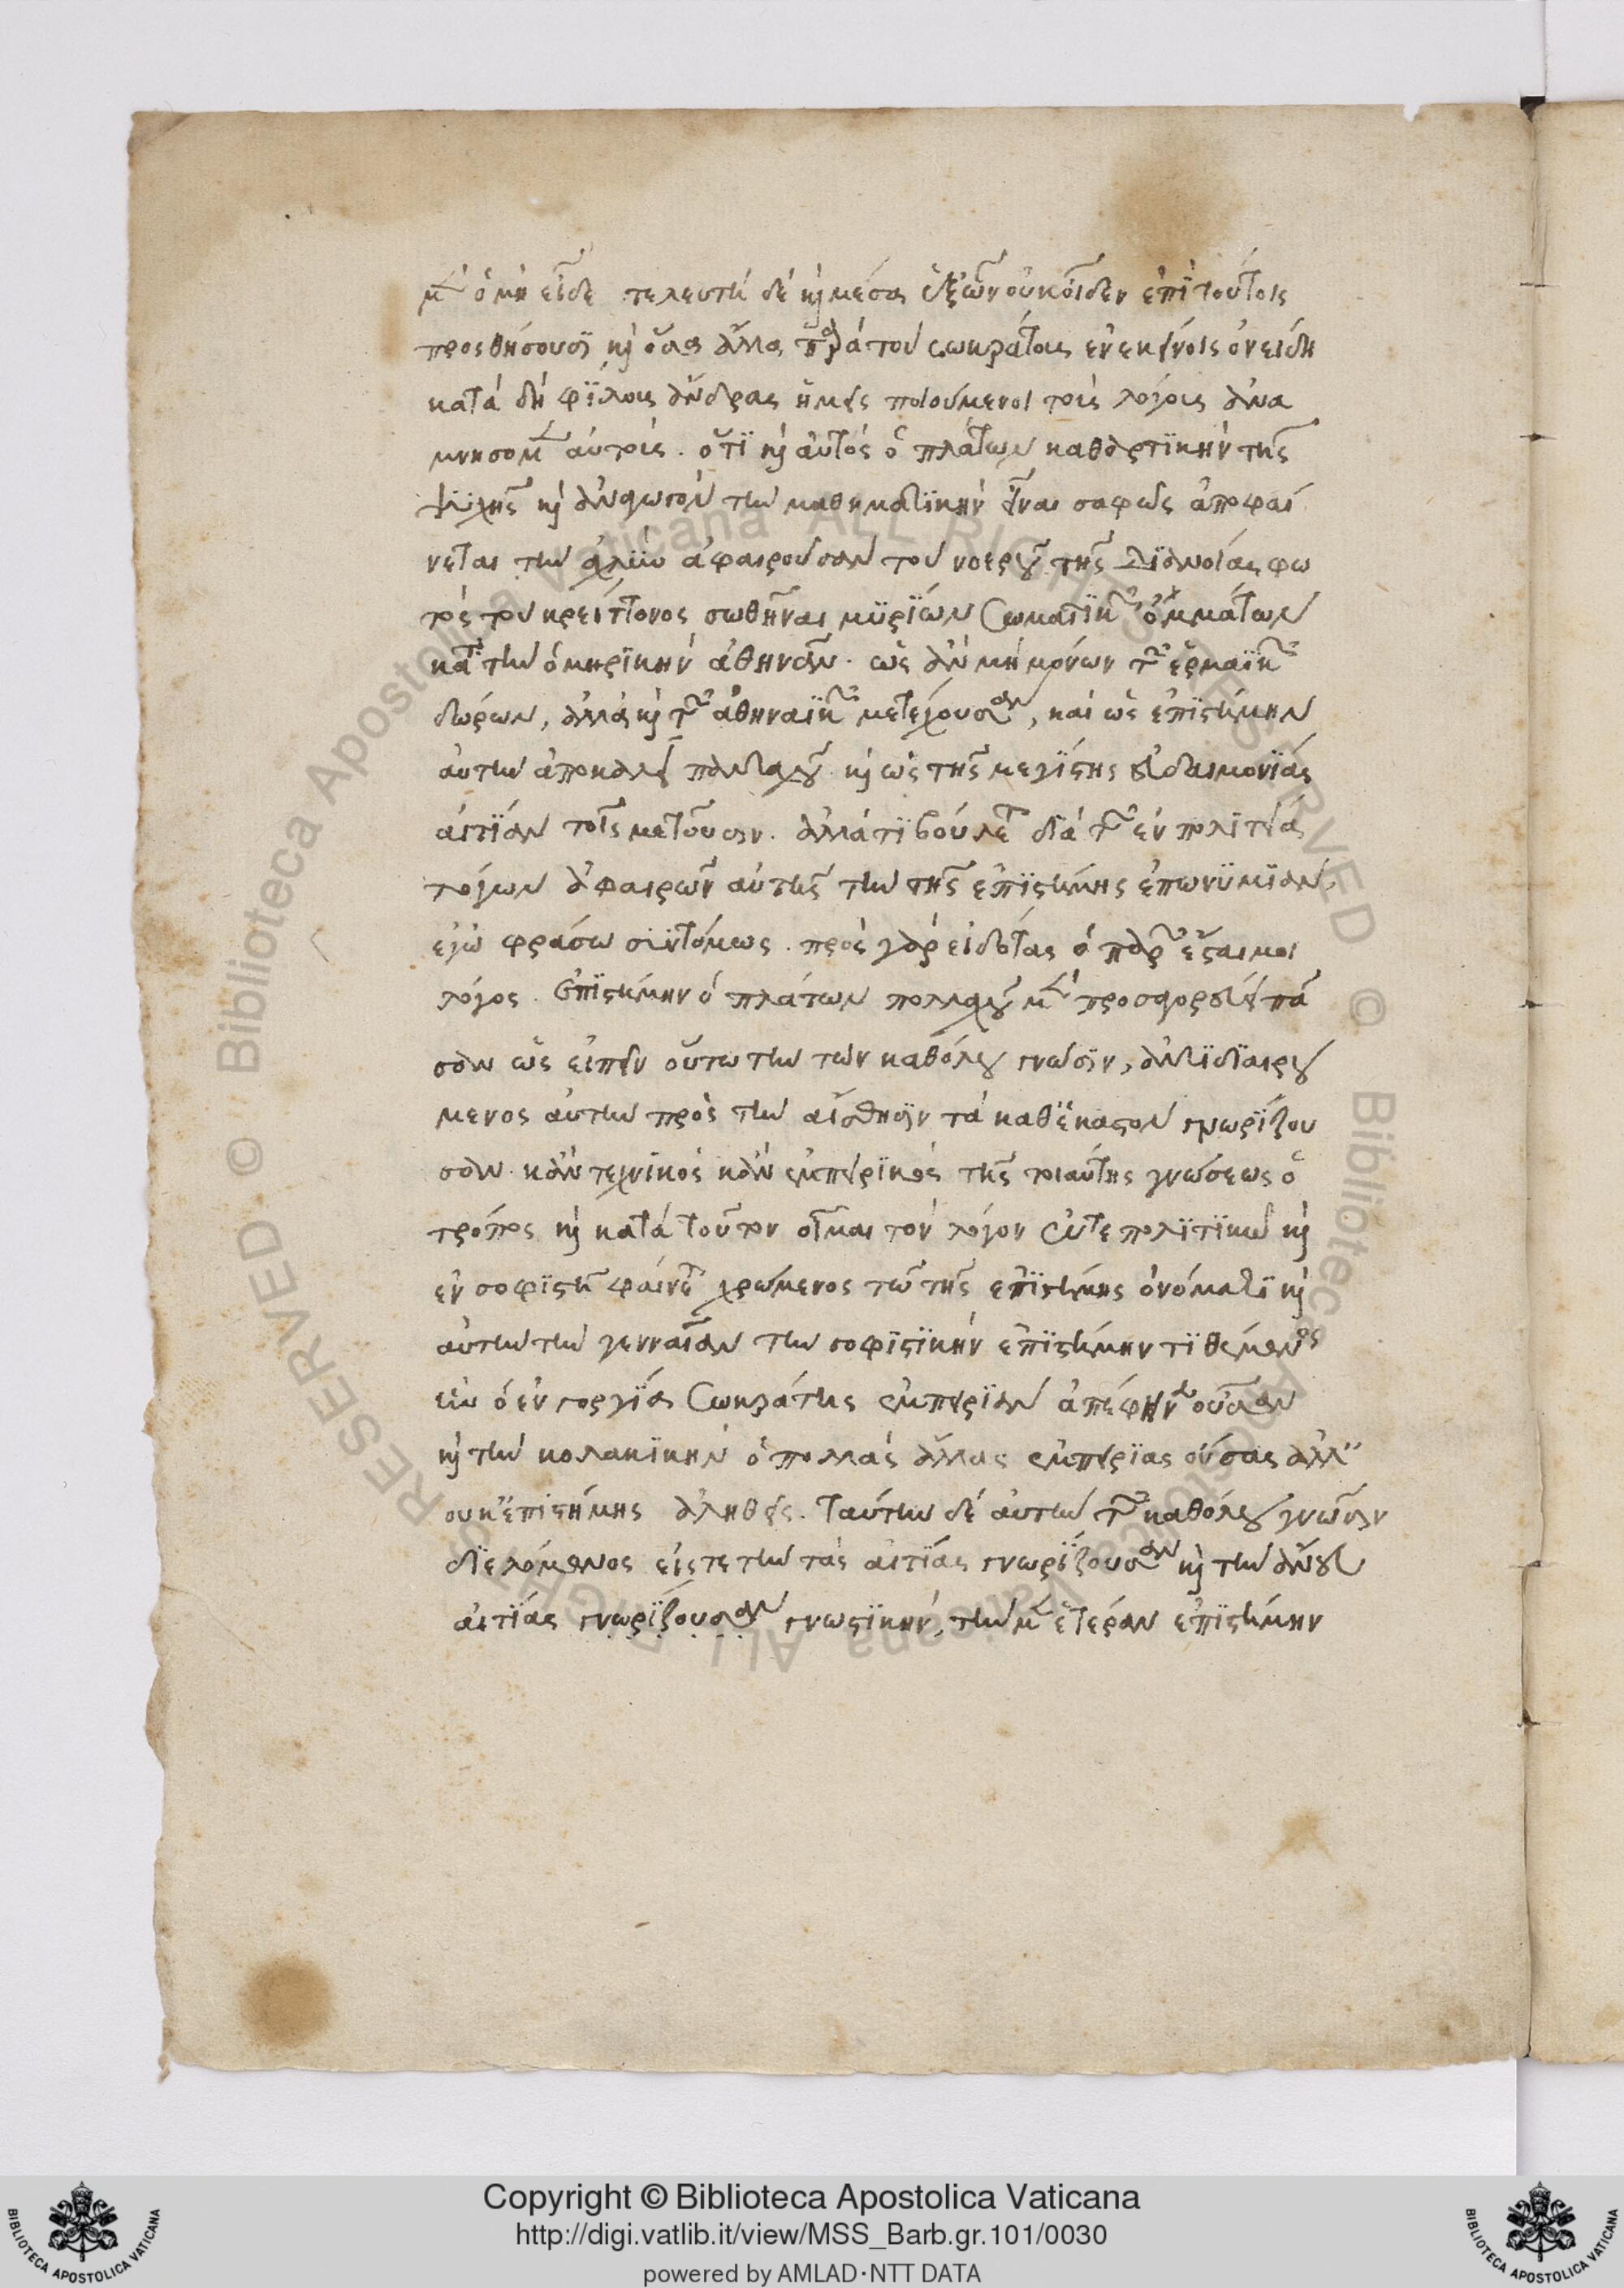 μὲν ὁ μὴ εἶδε τελευτὴ δὲ καὶ μέσα ἐξ ὧν οὐκ οἶδεν ἐπὶ τούτοις
προσθήσουσι καὶ ὅσα ἄλλα παρὰ τοῦ σωκράτους ἐν ἐκείνοις ὀνείδη
κατὰ δὴ φίλους ἄνδρας ἡμεῖς ποιούμενοι τοὺς λόγους ἀνα
μνήσομεν αὐτοὺς. ὅτι καὶ αὐτὸς ὁ πλάτων καθαρτικὴν τῆς
ψυχῆς καὶ ἀναγωγὸν τὴν μαθηματικὴν εἶναι σαφῶς ἀποφαί
νεται τὴν ἀχλὺν ἀφαιροῦσαν τοῦ νοεροῦ τῆς διανοίας φω
τὸς τοῦ κρείττονος σωθῆναι μυρίων σωματικῶν ὀμμάτων
κατὰ τὴν ὁμηρικὴν ἀθηνᾶν. ὡς ἂν μὴ μόνων τῶν ἑρμαϊκῶν
δώρων, ἀλλὰ καὶ τῶν ἀθηναϊκῶν μετέχουσαν, καὶ ὡς ἐπιστήμην
αὐτὴν ἀποκαλεῖ πανταχοῦ. καὶ ὡς τῆς μεγίστης εὐδαιμονίας
αἰτίαν τοῖς μετοῦσιν. ἀλλὰ τί βούλεται διὰ τῶν ἐν πολιτείᾳ
λόγων ἀφαιρῶν αὐτῆς τὴν τῆς ἐπιστήμης ἐπωνυμίαν,
ἐγὼ φράσω συντόμως. πρὸς γὰρ εἰδότας ὁ παρὼν ἔσται μοι
λόγος. ἐπιστήμην ὁ πλάτων πολλαχοῦ μὲν προσαγορεύει πᾶ
σαν ὡς εἰπεῖν οὕτω τὴν τῶν καθόλου γνῶσιν, ἀντιδιαιρού
μενος αὐτὴν πρὸς τὴν αἴσθησιν τὰ καθ' ἕκαστον γνωρίζου
σαν. κἂν τεχνικὸς κἂν ἐμπειρικὸς τῆς τοιαύτης γνώσεως ὁ
τρόπος καὶ κατὰ τοῦτον οἶμαι τὸν λόγον ἔν τε πολιτικῷ καὶ
ἐν σοφιστῇ φαίνεται χρώμενος τῷ τῆς ἐπιστήμης ὀνόματι καὶ
αὐτὴν τὴν γενναίαν τὴν σοφιστικὴν ἐπιστήμην τιθέμενος
ἣν ὁ ἐν γοργίᾳ σωκράτης ἐμπειρίαν ἀπέφηνεν οὖσαν
καὶ τὴν κολακικὴν ὁ πολλὰς ἄλλας ἐμπειρίας οὔσας ἀλλ'
οὐκ ἐπιστήμης ἀληθεῖς. ταύτην δὲ αὐτὴν τῶν καθόλου γνῶσιν
διελόμενος εἴς τε τὴν τὰς αἰτίας γνωρίζουσαν καὶ τὴν ἄνευ
αἰτίας γνωρίζουσαν γνωστικήν, τὴν μὲν ἑτέραν ἐπιστήμην
Copyright © Biblioteca Apostolica Vaticana
http://digi.vatlib.it/view/MSS_Barb.gr.101/0030
powered by AMLAD·NTT DATA